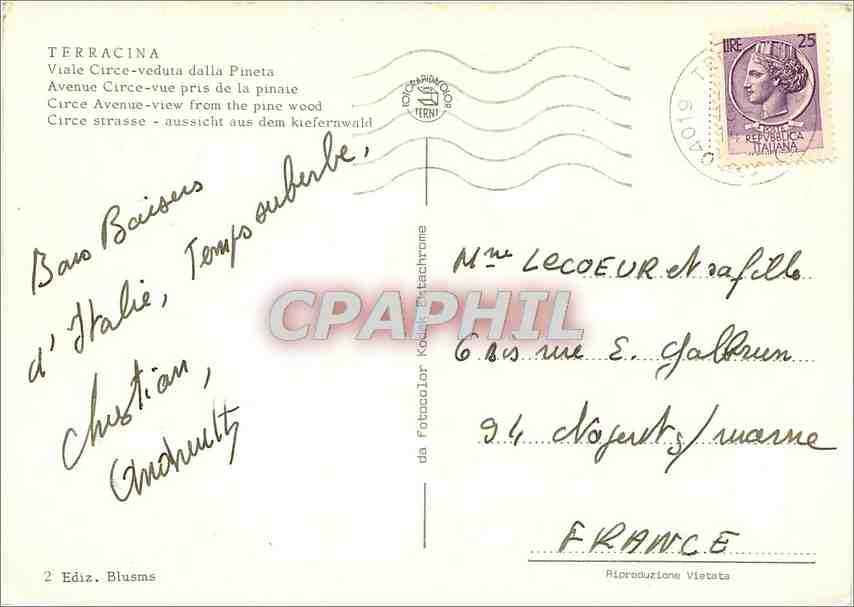 TERRACINA
Viale Circe-veduta dalla Pineta
Avenue Circe-vue pris de la pinaie
Circe Avenue-view from the pine wood
Circe strasse - aussicht aus dem kiefernwald
FOTORAPIDACOLOR
TERNI
04019
LIRE 25
POSTE
REPVBBLICA
ITALIANA
Bons Baisers
d'Italie, Temps suberbe,
Christian,
CPAPHIL
da fotocolor Kodak Ektachrome
Mme LECOEUR et sa fille
6 bis rue E. Galbrun
94 Nogent s/marne
FRANCE
2 Ediz. Blusms
Riproduzione Vietata